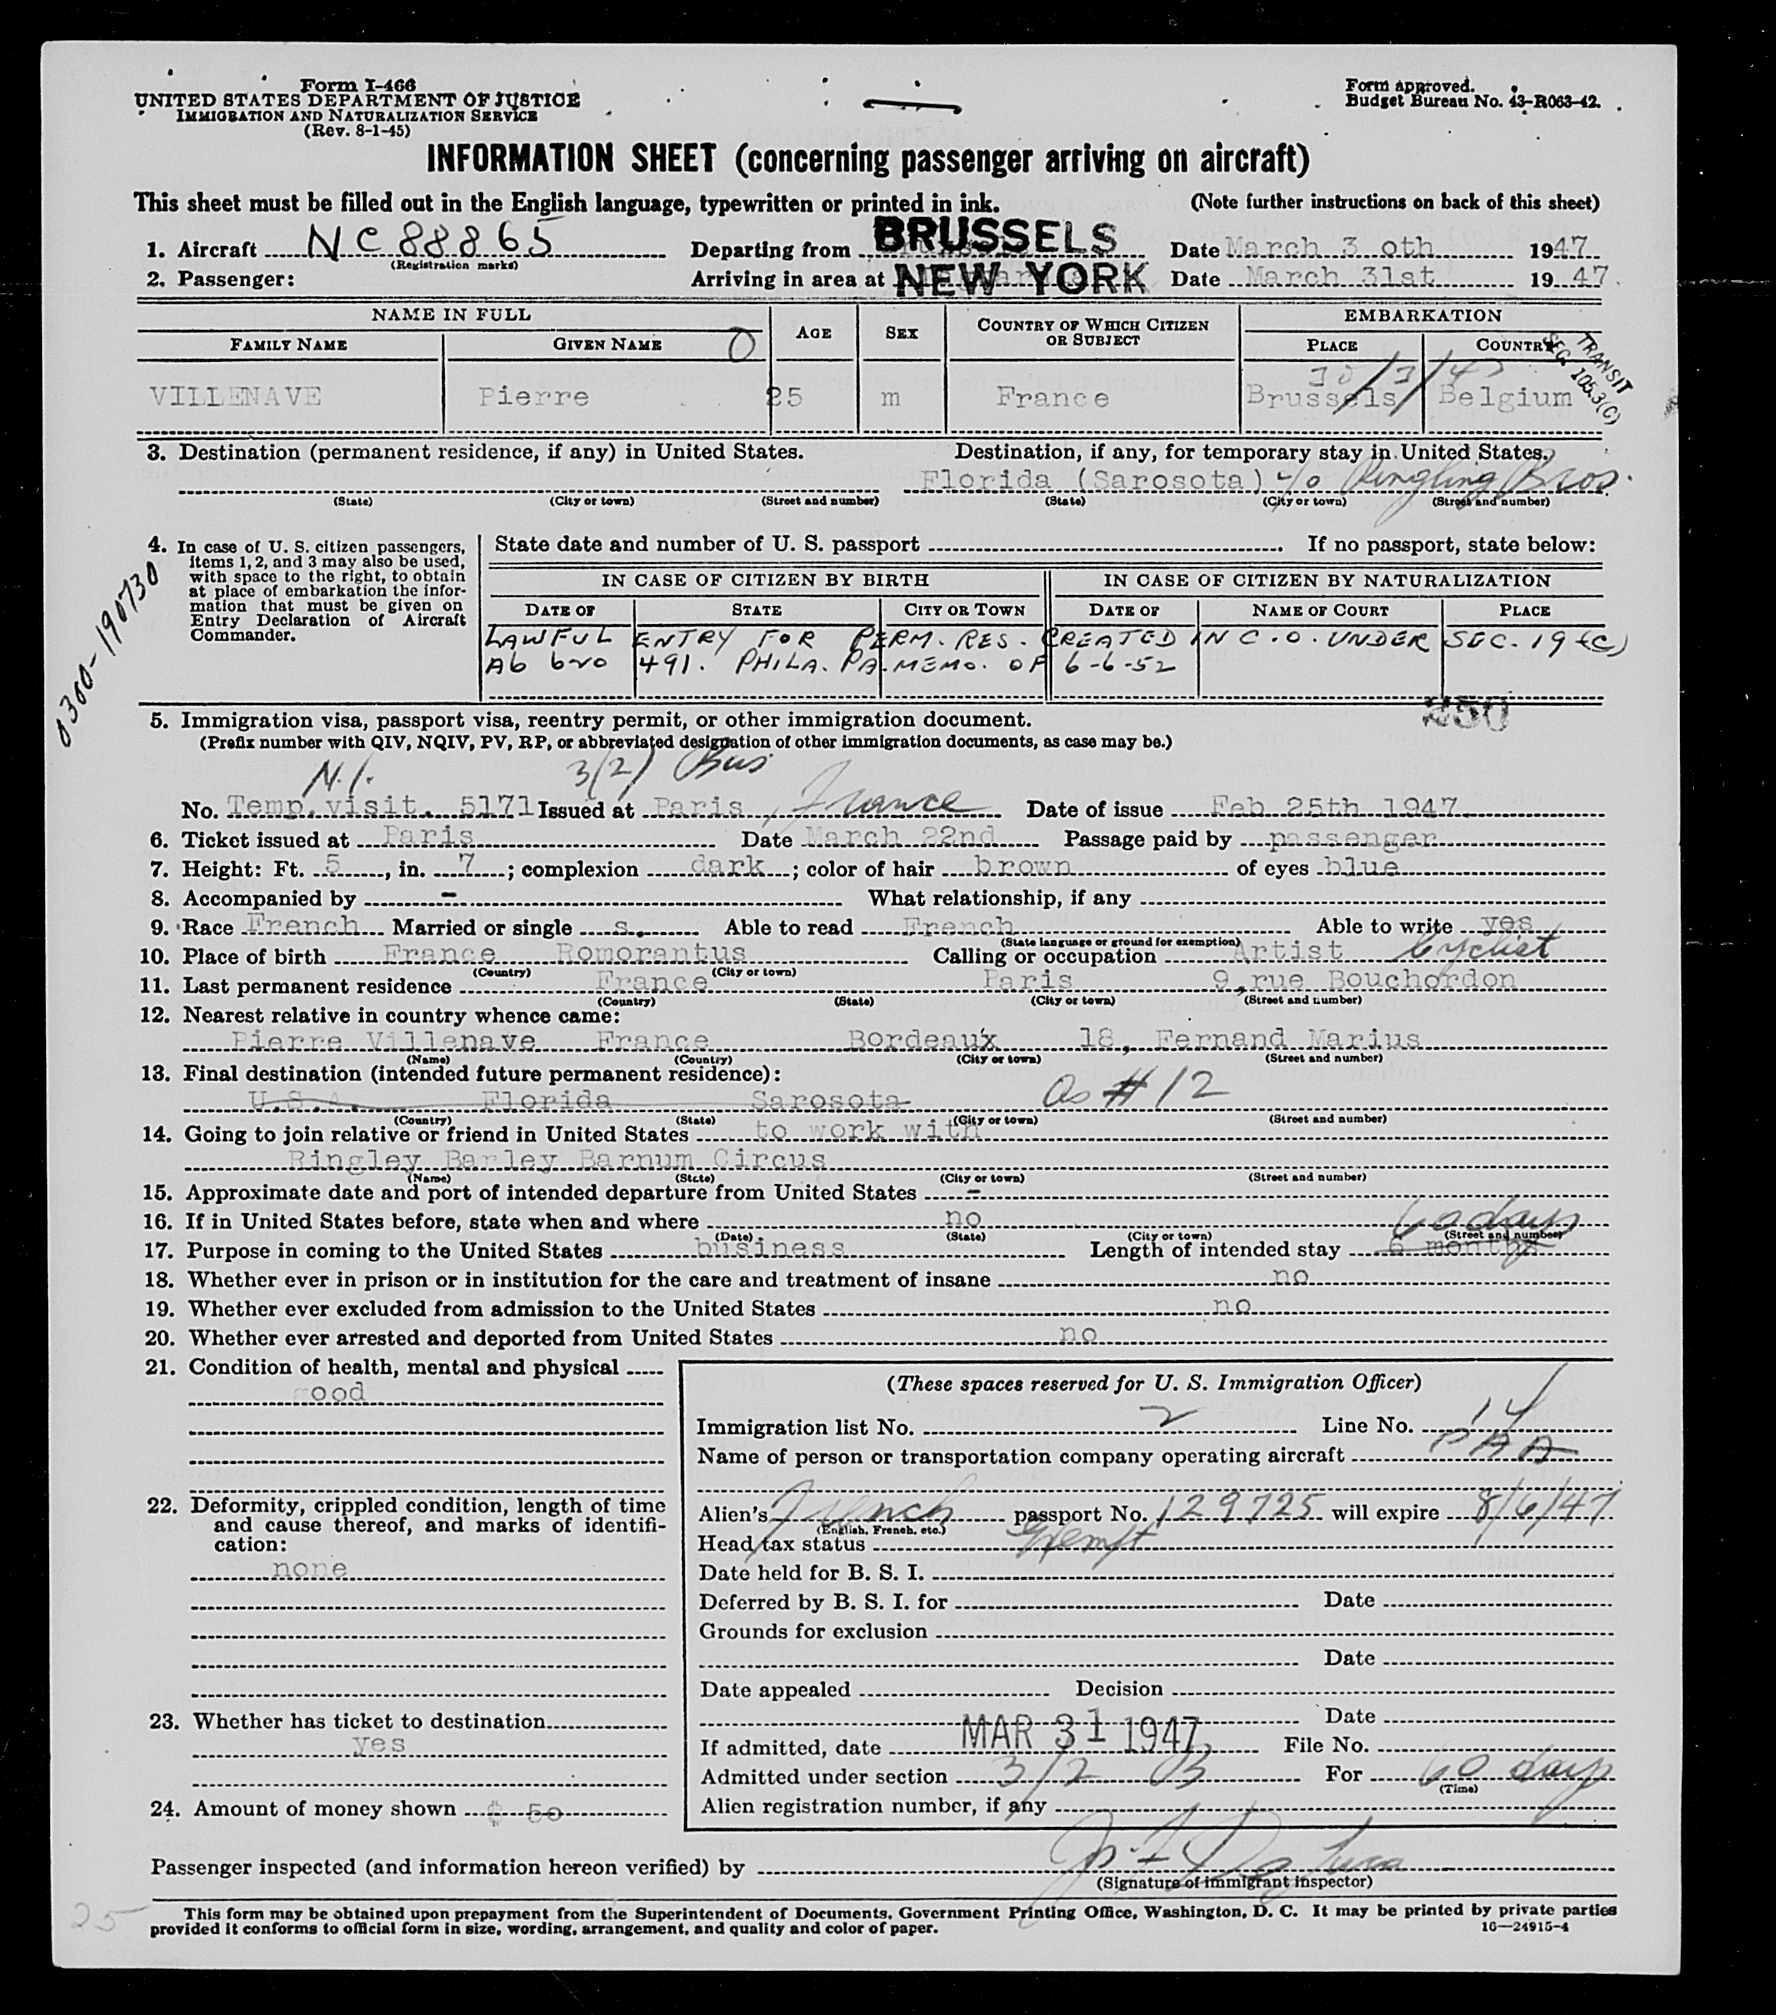 Form I-466
UNITED STATES DEPARTMENT OF JUSTICE
IMMIGRATION AND NATURALIZATION SERVICE
(Rev. 8-1-45)
Form approved.
Budget Bureau No. 43-R063-42.
INFORMATION SHEET (concerning passenger arriving on aircraft)
This sheet must be filled out in the English language, typewritten or printed in ink. (Note further instructions on back of this sheet)
1. Aircraft NC 88865 Departing from BRUSSELS Date March 3 oth 1947
(Registration marks)
2. Passenger: Arriving in area at NEW YORK Date March 31st 1947
NAME IN FULL AGE SEX COUNTRY OF WHICH CITIZEN OR SUBJECT EMBARKATION
FAMILY NAME GIVEN NAME O PLACE COUNTRY
TRANSIT
SEC. 105.3(C)
30/3/47
VILLENAVE Pierre 25 m France Brussels Belgium
3. Destination (permanent residence, if any) in United States. Destination, if any, for temporary stay in United States.
Florida (Sarosota) c/o Ringling Bros.
(State) (City or town) (Street and number) (State) (City or town) (Street and number)
0300-190730
4. In case of U. S. citizen passengers, items 1, 2, and 3 may also be used, with space to the right, to obtain at place of embarkation the information that must be given on Entry Declaration of Aircraft Commander.
State date and number of U. S. passport If no passport, state below:
IN CASE OF CITIZEN BY BIRTH IN CASE OF CITIZEN BY NATURALIZATION
DATE OF STATE CITY OR TOWN DATE OF NAME OF COURT PLACE
LAWFUL ENTRY FOR PERM. RES. CREATED IN C.O. UNDER SEC. 19(C)
A6 620 491. PHILA. PA. MEMO. OF 6-6-52
250
5. Immigration visa, passport visa, reentry permit, or other immigration document.
(Prefix number with QIV, NQIV, PV, RP, or abbreviated designation of other immigration documents, as case may be.)
N.I. 3(2) Bus
No. Temp. visit. 5171 Issued at Paris, France Date of issue Feb 25th 1947
6. Ticket issued at Paris Date March 22nd Passage paid by passenger
7. Height: Ft. 5, in. 7; complexion dark; color of hair brown of eyes blue
8. Accompanied by - What relationship, if any
9. Race French Married or single s. Able to read French Able to write yes
(State language or ground for exemption)
10. Place of birth France Romorantus Calling or occupation Artist Cyclist
(Country) (City or town)
11. Last permanent residence France Paris 9,rue Bouchordon
(Country) (State) (City or town) (Street and number)
12. Nearest relative in country whence came:
Pierre Villenave France Bordeaux 18, Fernand Marius
(Name) (Country) (City or town) (Street and number)
13. Final destination (intended future permanent residence):
U.S.A. Florida Sarosota As #12
(Country) (State) (City or town) (Street and number)
14. Going to join relative or friend in United States to work with
Ringley Barley Barnum Circus
(Name) (State) (City or town) (Street and number)
15. Approximate date and port of intended departure from United States -
16. If in United States before, state when and where no
(Date) (State) (City or town) (Street and number)
60 days
17. Purpose in coming to the United States business Length of intended stay 6 months
18. Whether ever in prison or in institution for the care and treatment of insane no
19. Whether ever excluded from admission to the United States no
20. Whether ever arrested and deported from United States no
21. Condition of health, mental and physical
good
22. Deformity, crippled condition, length of time and cause thereof, and marks of identification:
none
23. Whether has ticket to destination
yes
24. Amount of money shown $ 50
(These spaces reserved for U. S. Immigration Officer)
Immigration list No. 2 Line No. 14
Name of person or transportation company operating aircraft PAA
Alien's French passport No. 129725 will expire 8/6/47
(English, French, etc.)
Head tax status Exempt
Date held for B. S. I.
Deferred by B. S. I. for Date
Grounds for exclusion
Date
Date appealed Decision
Date
If admitted, date MAR 31 1947 File No.
Admitted under section 3/2 B For 60 days
(Time)
Alien registration number, if any
Passenger inspected (and information hereon verified) by
(Signature of immigrant inspector)
25
This form may be obtained upon prepayment from the Superintendent of Documents, Government Printing Office, Washington, D. C. It may be printed by private parties
provided it conforms to official form in size, wording, arrangement, and quality and color of paper. 16—24915-4